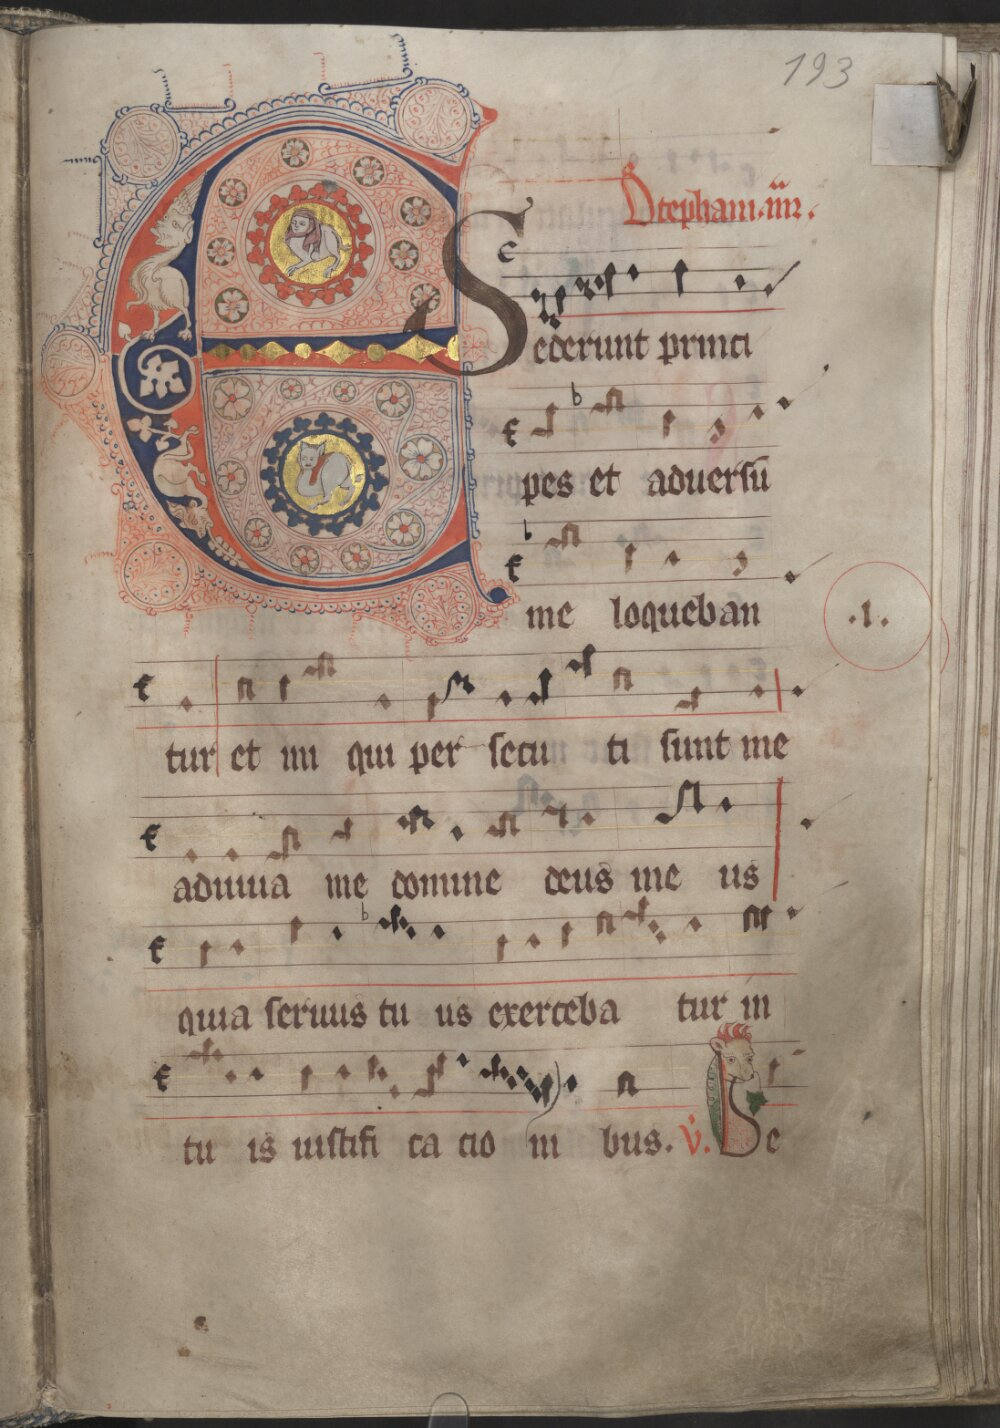 193
Stephani. m̅r.
Sederunt princi
pes et aduersū
me loqueban
.1.
tur et ini qui per secu ti sunt me
adiuua me domine deus me us
quia seruus tu us exerceba tur in
tu is iustifi ca cio ni bus. v̇. Be